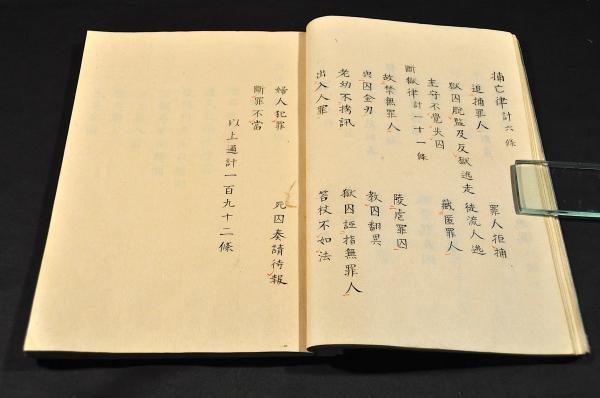 捕亡律計六條
追捕罪人 罪人拒捕
獄囚脫監及反獄逃走 徒流人逃
主守不覺失囚 藏匿罪人
斷獄律計一十一條
故禁無罪人 陵虐罪囚
與囚金刃 教囚翻異
老幼不拷訊 獄囚誣指無罪人
出入人罪 笞杖不如法
婦人犯罪 死囚奏請待報
斷罪不當
以上通計一百九十二條